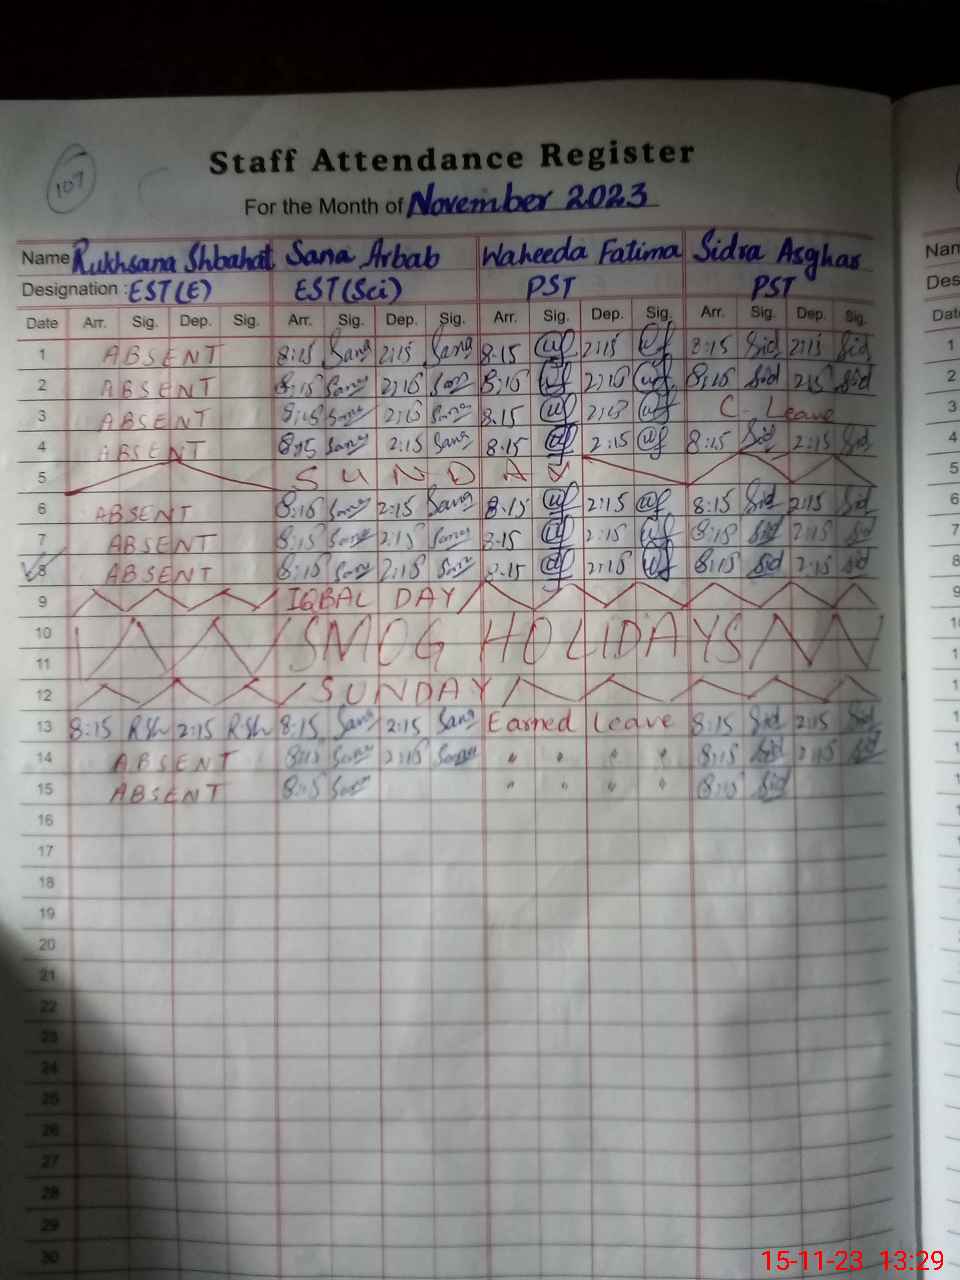 107
Staff Attendance Register
For the Month of November 2023
Name Rukhsana Shbahat Sana Arbab Waheeda Fatima Sidra Asghar
Designation : EST(E) EST(Sci) PST PST
Date Arr. Sig. Dep. Sig. Arr. Sig. Dep. Sig. Arr. Sig. Dep. Sig. Arr. Sig. Dep. Sig.
1 ABSENT 8:15 Sana 2:15 Sana 8:15 wf 2:15 wf 8:15 Sid 2:15 Sid
2 ABSENT 8:15 Sana 2:15 Sana 8:15 wf 2:15 wf 8:15 Sid 2:15 Sid
3 ABSENT 8:15 Sana 2:15 Sana 8:15 wf 2:15 wf C-Leave
4 ABSENT 8:15 Sana 2:15 Sana 8:15 wf 2:15 wf 8:15 Sid 2:15 Sid
5 SUNDAY
6 ABSENT 8:15 Sana 2:15 Sana 8:15 wf 2:15 wf 8:15 Sid 2:15 Sid
7 ABSENT 8:15 Sana 2:15 Sana 8:15 wf 2:15 wf 8:15 Sid 2:15 Sid
8 ABSENT 8:15 Sana 2:15 Sana 8:15 wf 2:15 wf 8:15 Sid 2:15 Sid
9 IQBAL DAY
10 SMOG HOLIDAYS
11
12 SUNDAY
13 8:15 RSh 2:15 RSh 8:15 Sana 2:15 Sana Earned Leave 8:15 Sid 2:15 Sid
14 ABSENT 8:15 Sana 2:15 Sana " " " " 8:15 Sid 2:15 Sid
15 ABSENT 8:15 Sana " " " " 8:15 Sid
16
17
18
19
20
21
22
23
24
25
26
27
28
29
30
15-11-23 13:29